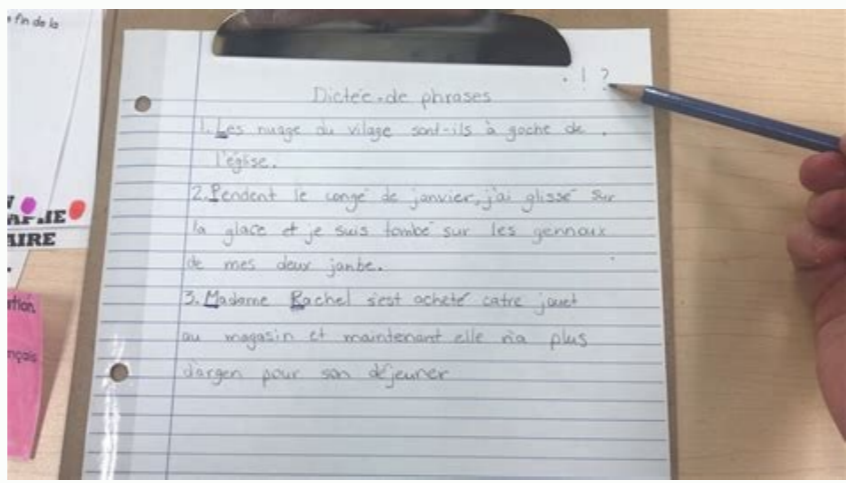 fin de la
. ! ?
Dictée de phrases
1. Les nuage du vilage sont-ils à goche de .
l'église.
2. Pendent le congé de janvier, j'ai glissé sur
la glace et je suis tombé sur les gennoux
de mes deux janbe.
3. Madame Rachel s'est acheté catre jouet
au magasin et maintenant elle n'a plus
d'argen pour son déjeuner
AIRE